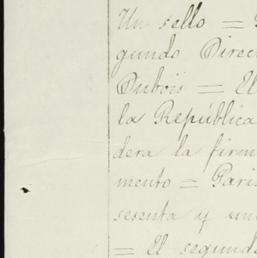 Un sello =
gundo Direc
Dubois = El
la República
dera la firm
mento = Pari
sesenta y un
= El segund